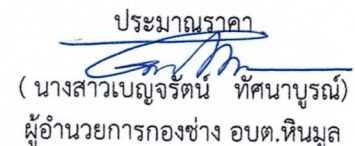 ประมาณราคา
( นางสาวเบญจรัตน์ ทัศนาบูรณ์)
ผู้อำนวยการกองช่าง อบต.หินมูล